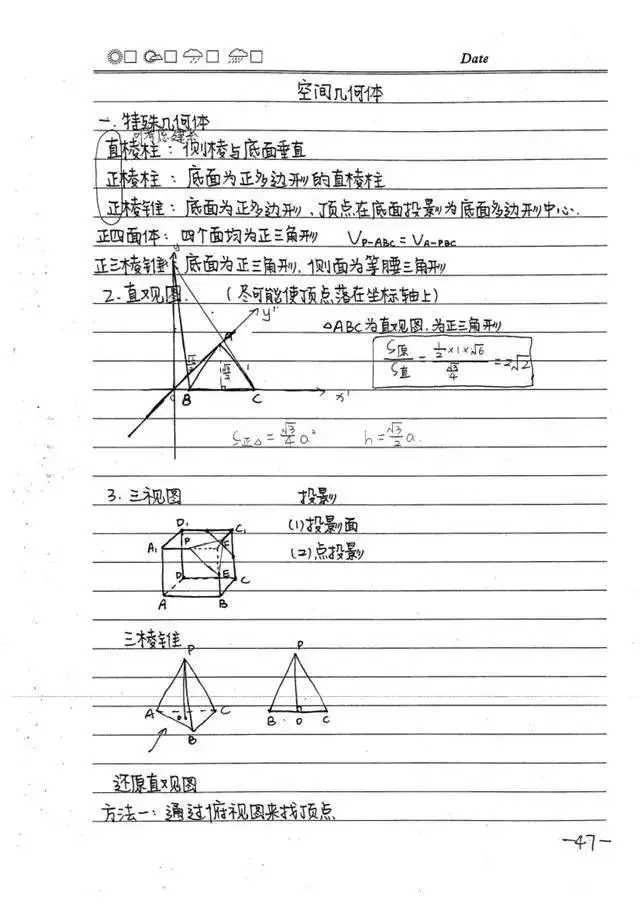 Date
空间几何体
一.特殊几何体
直棱柱：侧棱与底面垂直
正棱柱：底面为正多边形的直棱柱
正棱锥：底面为正多边形、顶点在底面投影为底面多边形中心.
正四面体：四个面均为正三角形 V_{P-ABC} = V_{A-PBC}
正三棱锥：底面为正三角形，侧面为等腰三角形
2.直观图. （尽可能使顶点落在坐标轴上）
y
y'
A
△ABC为直观图.为正三角形
S原/S直 = (1/2×1×√6)/(√3/4) = 2√2
√3/2
1
B
C
x'
S正△ = √3/4 a² h = √3/2 a.
3.三视图 投影
(1)投影面
(2)点投影
D₁
C₁
A₁
P
F
D
E
C
A
B
三棱锥
P
P
A
O
C
B
B
O
C
还原直观图
方法一：通过俯视图来找顶点
-47-